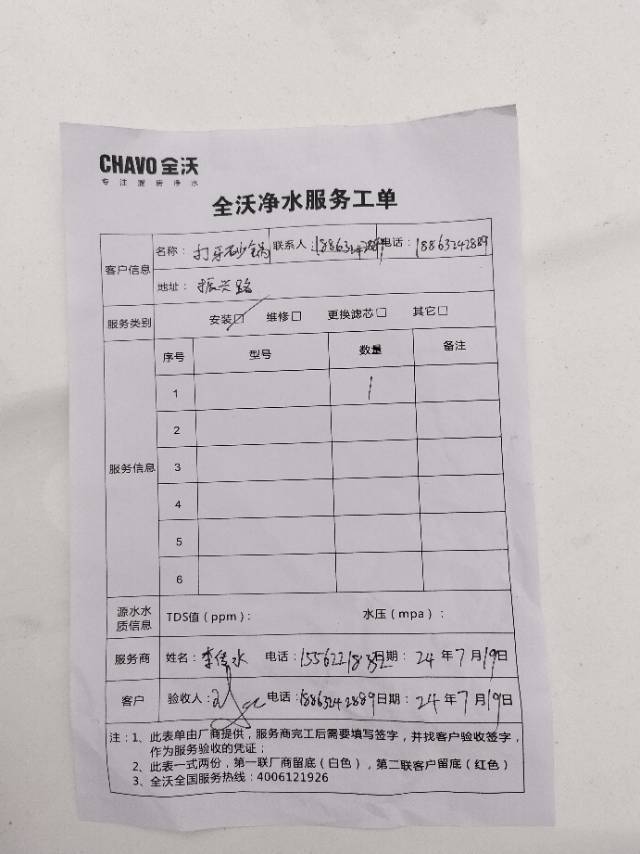 CHAVO 全沃
专注厨房净水
全沃净水服务工单
客户信息 名称： 打牙砂锅 联系人：18863242889 电话：18863242889
地址： 振兴路
服务类别 安装□ 维修□ 更换滤芯□ 其它□
服务信息 序号 型号 数量 备注
1 1
2
3
4
5
6
源水水质信息 TDS值（ppm）： 水压（mpa）：
服务商 姓名： 电话： 日期： 24 年 7 月 19 日
客户 验收人： 电话：18863242889 日期： 24 年 7 月 19 日
注：1、此表单由厂商提供，服务商完工后需要填写签字，并找客户验收签字，
作为服务验收的凭证；
2、此表一式两份，第一联厂商留底（白色），第二联客户留底（红色）
3、全沃全国服务热线：4006121926